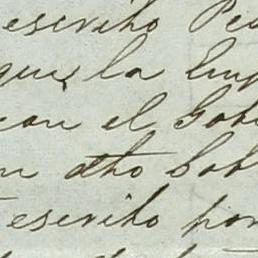 escrito Pe
que la Emp
con el Gob
n dho Gob
escrito por